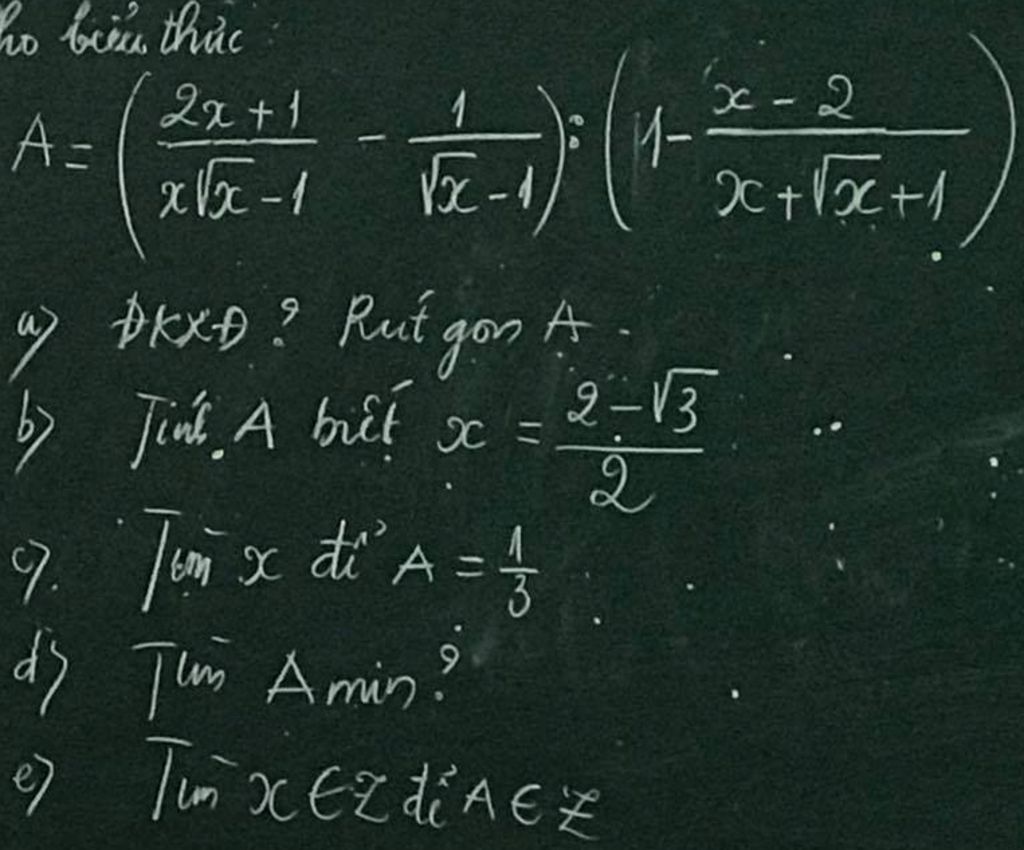 ho biểu thức
A = ( (2x + 1)/(x√x - 1) - 1/(√x - 1) ) : ( 1 - (x - 2)/(x + √x + 1) )
a) ĐKXĐ? Rút gọn A.
b) Tính A biết x = (2 - √3)/2
c). Tìm x để A = 1/3
d) Tìm A min?
e) Tìm x ∈ Z để A ∈ Z